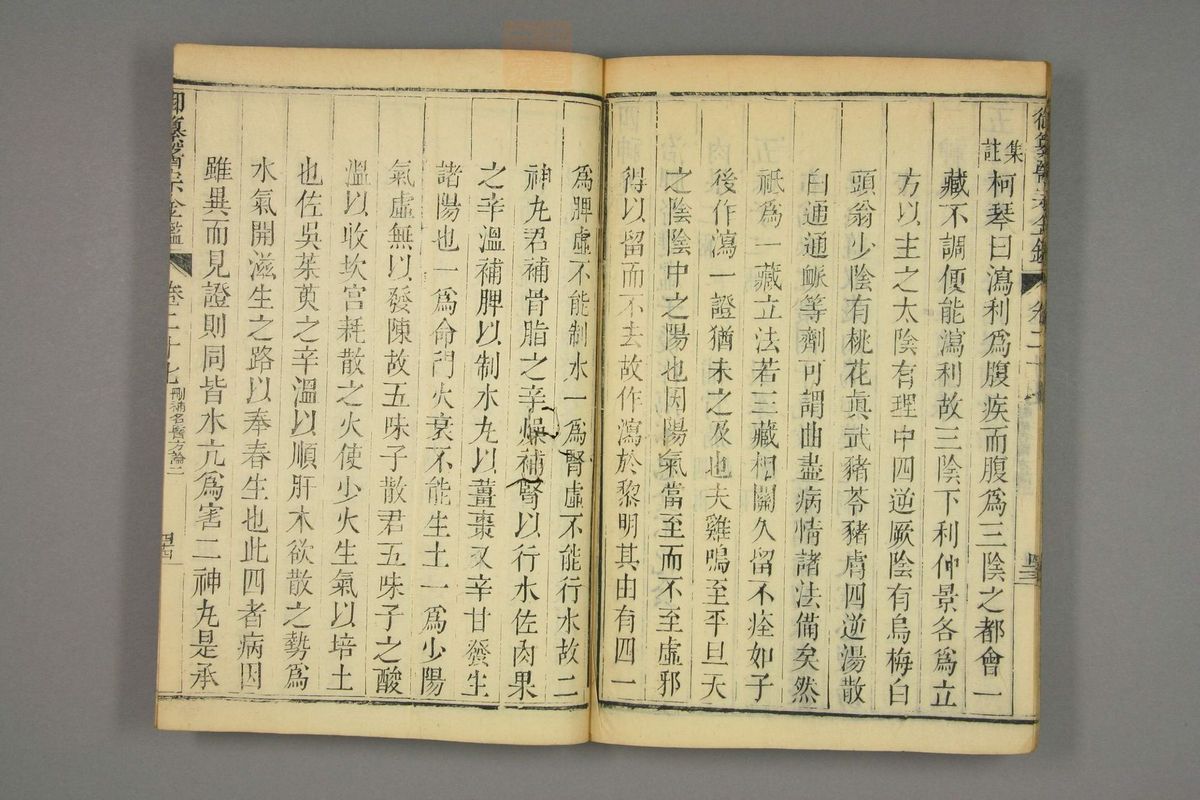 御纂醫宗金鑑 卷二十
集註柯琴曰瀉利爲腹疾而腹爲三陰之都會一
藏不調便能瀉利故三陰下利仲景各爲立
方以主之太陰有理中四逆厥陰有烏梅白
頭翁少陰有桃花眞武豬苓豬膚四逆湯散
白通通脈等劑可謂曲盡病情諸法備矣然
祇爲一藏立法若三藏相關久留不痊如子
後作瀉一證猶未之及也夫雞鳴至平旦天
之陰陰中之陽也因陽氣當至而不至虛邪
得以留而不去故作瀉於黎明其由有四一
爲脾虛不能制水一爲腎虛不能行水故二
神丸君補骨脂之辛燥補腎以行水佐肉果
之辛溫補脾以制水丸以薑棗又辛甘發生
諸陽也一爲命門火衰不能生土一爲少陽
氣虛無以發陳故五味子散君五味子之酸
溫以收坎宮耗散之火使少火生氣以培土
也佐吳茱萸之辛溫以順肝木欲散之勢爲
水氣開滋生之路以奉春生也此四者病因
雖異而見證則同皆水亢爲害二神丸是承
御纂醫宗金鑑 卷二十七 刪補名醫方論二